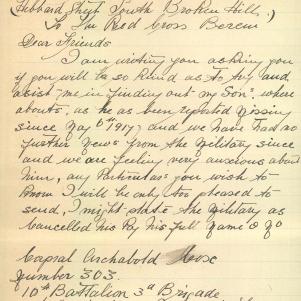 Hebbard Street South Broken Hill.)
To The Red Cross Berein
Dear Friends
I am writing you asking you
if you will be so kind as to try and
asist me in finding out my Son, where
abouts, as he as been reported Missing
since May 6th 1917, and we have had no
further News from the Military since
and we are feeling very anxious about
him, any Particulars you wish to
know I will be only too pleased to
send, I might state the Military as
cancelled his Pay his full name &
Archabold
Number 303.
10th Battalion 3rd Brigade